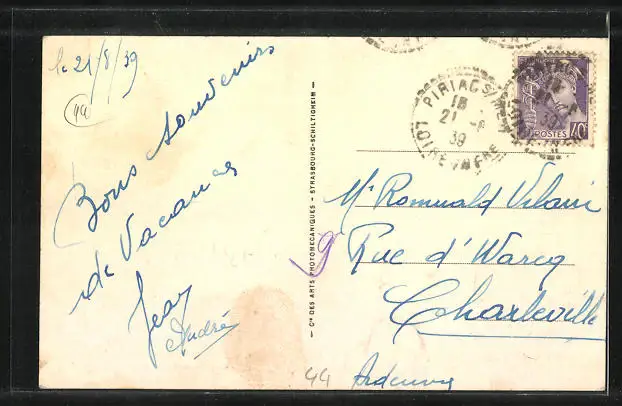 le 21/8/39
44
Bons souvenirs
de Vacances
Jean
André
Cie DES ARTS PHOTOMECANIQUES - STRASBOURG-SCHILTIGHEIM -
PIRIAC S/MER
18
21 -8
39
LOIRE-INFRE
POSTES
40
Mr Romuald Vilain
Rue d'Warcq
Charleville
Ardennes
44